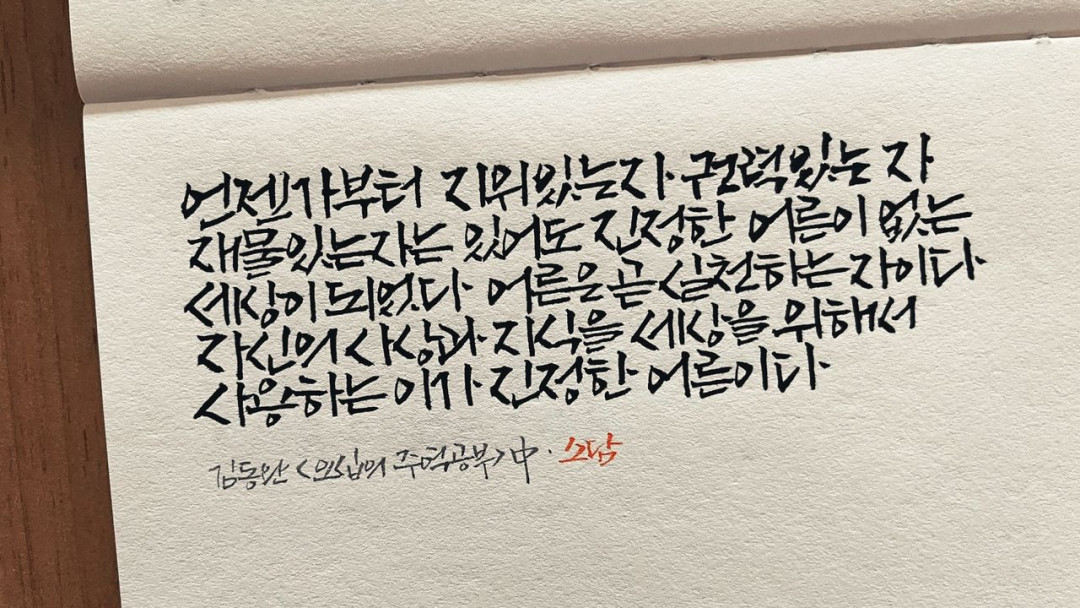 언젠가부터 지위있는자 권력있는 자
재물있는자는 있어도 진정한 어른이 없는
세상이 되었다 어른은 곧 실천하는 자이다
자신의 사상과 지식을 세상을 위해서
사용하는 이가 진정한 어른이다
김동완 <오십의 주역공부>中 · 소담